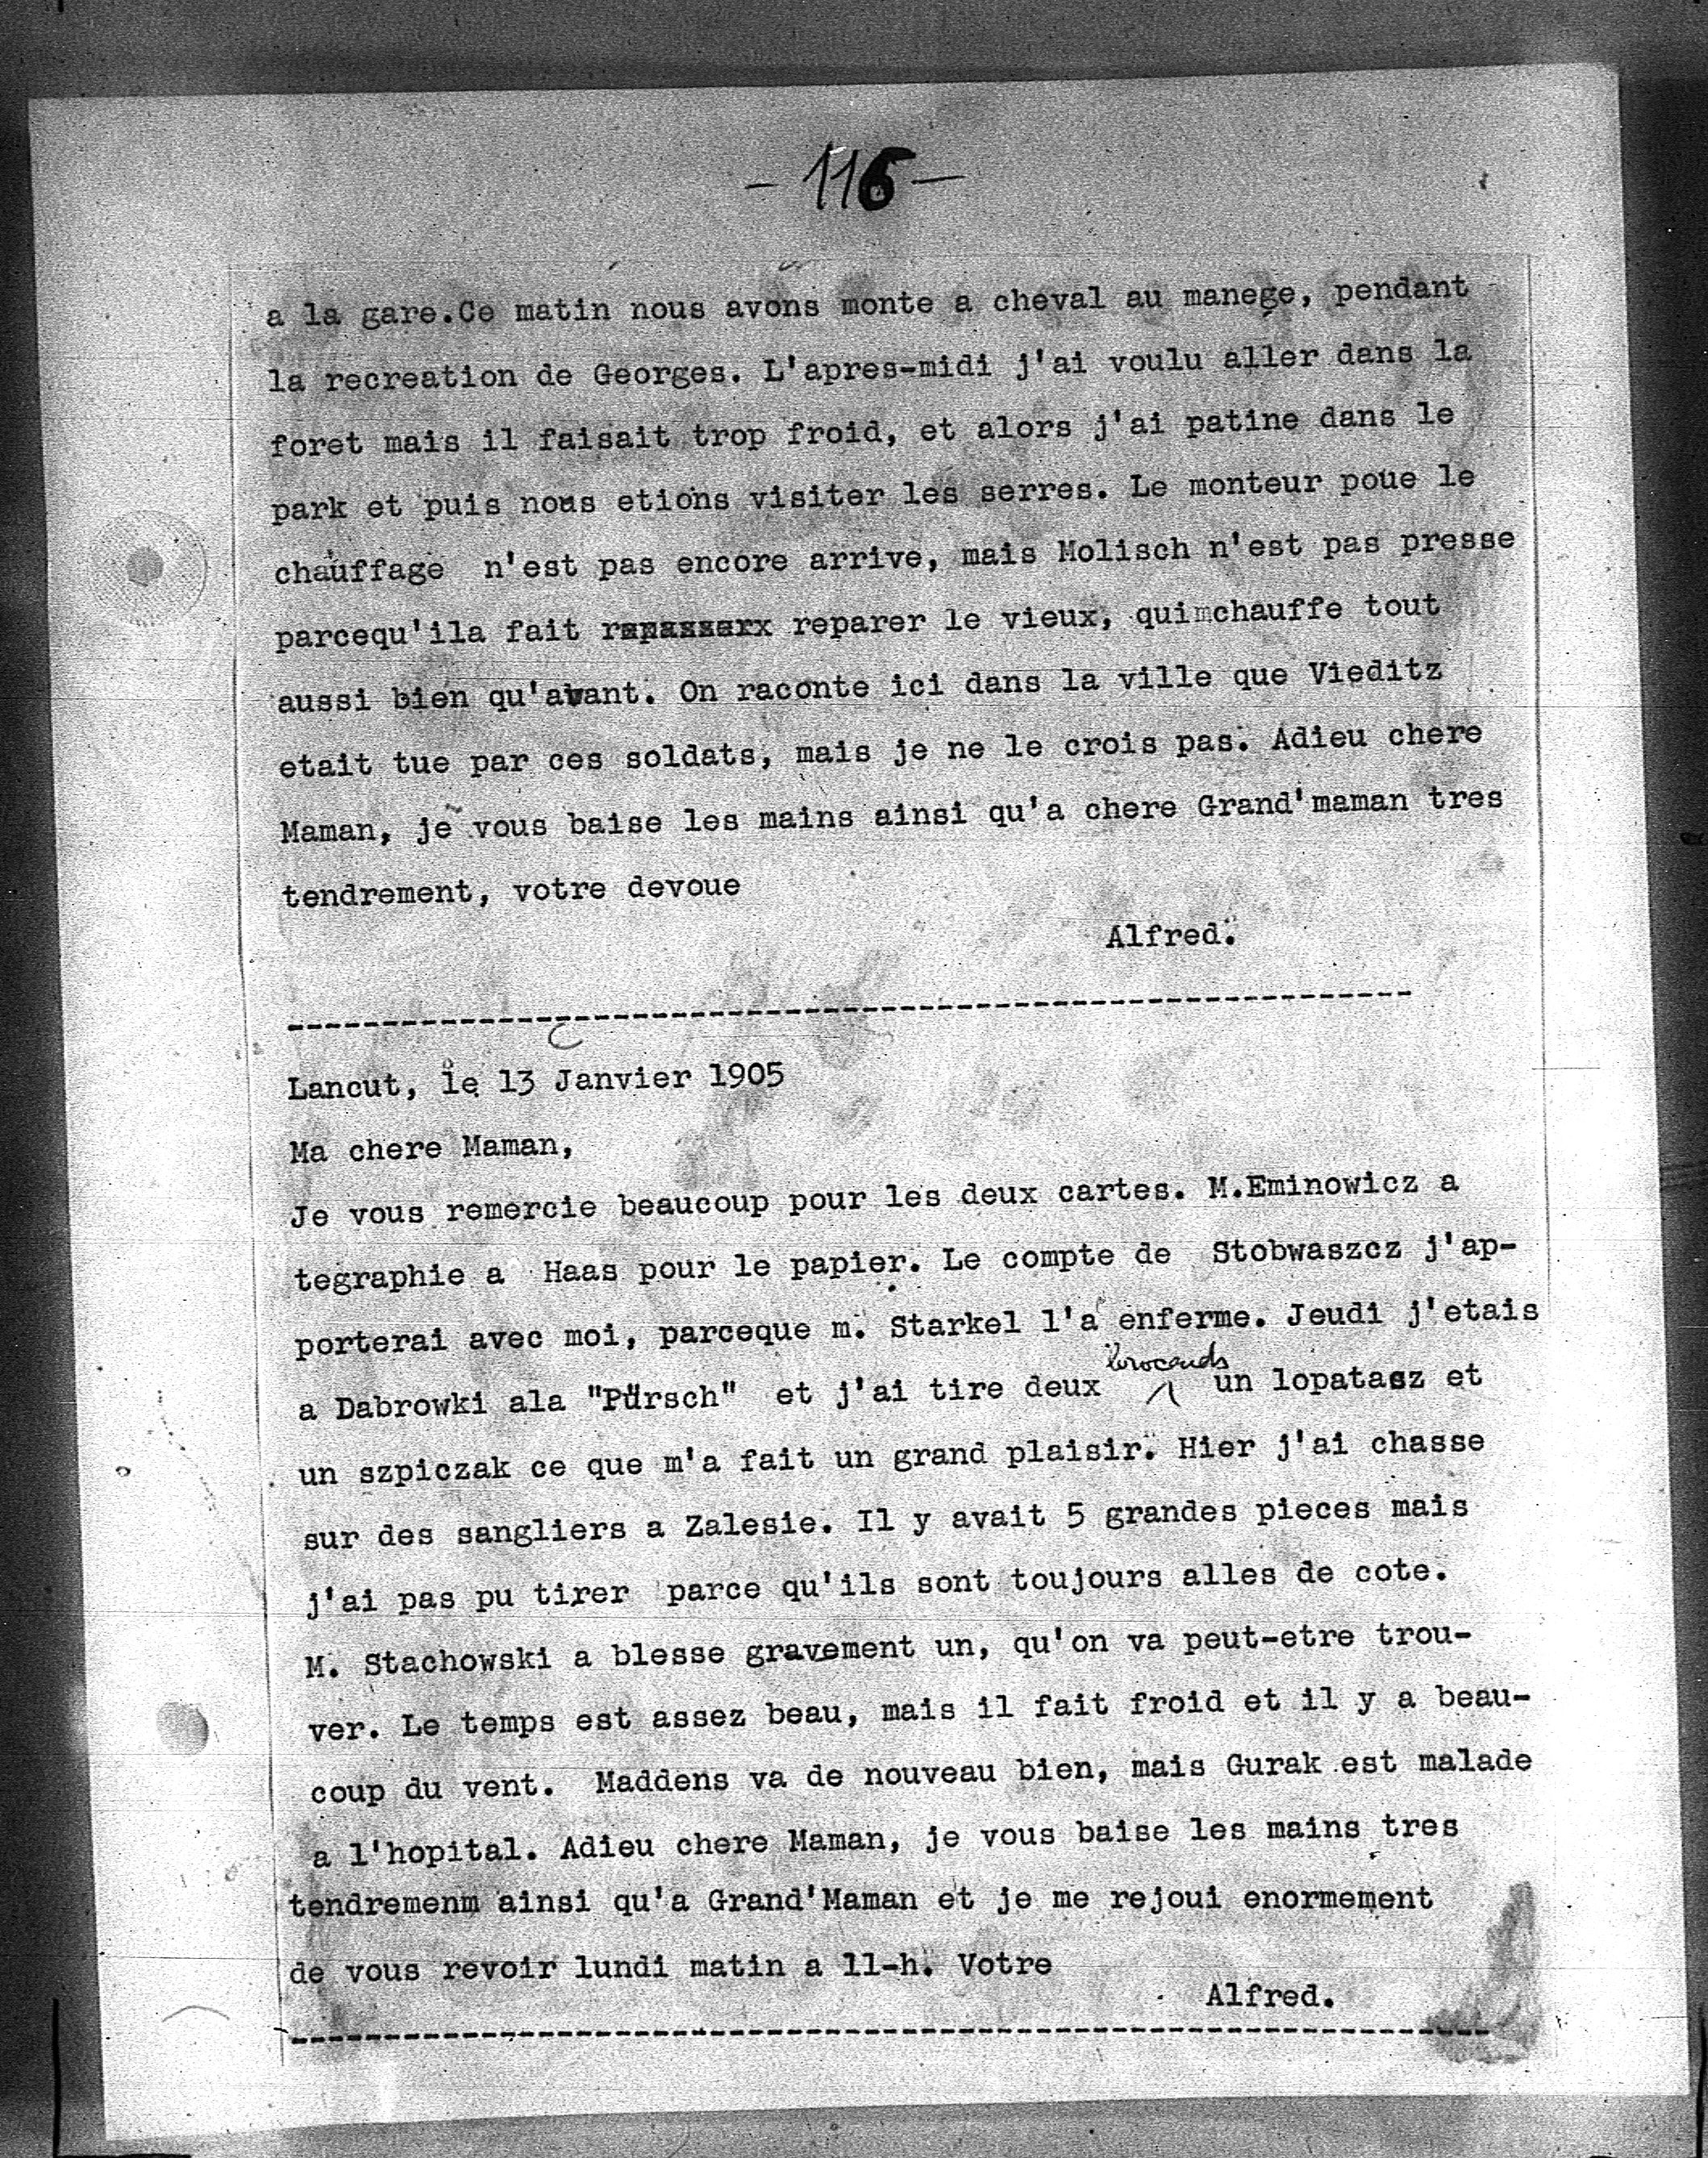 - 116 -
a la gare.Ce matin nous avons monte a cheval au manege, pendant
la recreation de Georges. L'apres-midi j'ai voulu aller dans la
foret mais il faisait trop froid, et alors j'ai patine dans le
park et puis nous etions visiter les serres. Le monteur poue le
chauffage n'est pas encore arrive, mais Molisch n'est pas presse
parcequ'ila fait reparer le vieux, quimchauffe tout
aussi bien qu'avant. On raconte ici dans la ville que Vieditz
etait tue par ces soldats, mais je ne le crois pas. Adieu chere
Maman, je vous baise les mains ainsi qu'a chere Grand'maman tres
tendrement, votre devoue
Alfred.
Lancut, le 13 Janvier 1905
Ma chere Maman,
Je vous remercie beaucoup pour les deux cartes. M.Eminowicz a
tegraphie a Haas pour le papier. Le compte de Stobwaszcz j'ap-
porterai avec moi, parceque m. Starkel l'a enferme. Jeudi j'etais
a Dabrowki ala "Pürsch" et j'ai tire deux un lopatasz et
un szpiczak ce que m'a fait un grand plaisir. Hier j'ai chasse
sur des sangliers a Zalesie. Il y avait 5 grandes pieces mais
j'ai pas pu tirer parce qu'ils sont toujours alles de cote.
M. Stachowski a blesse gravement un, qu'on va peut-etre trou-
ver. Le temps est assez beau, mais il fait froid et il y a beau-
coup du vent. Maddens va de nouveau bien, mais Gurak est malade
a l'hopital. Adieu chere Maman, je vous baise les mains tres
tendremenm ainsi qu'a Grand'Maman et je me rejoui enormement
de vous revoir lundi matin a 11-h. Votre
Alfred.